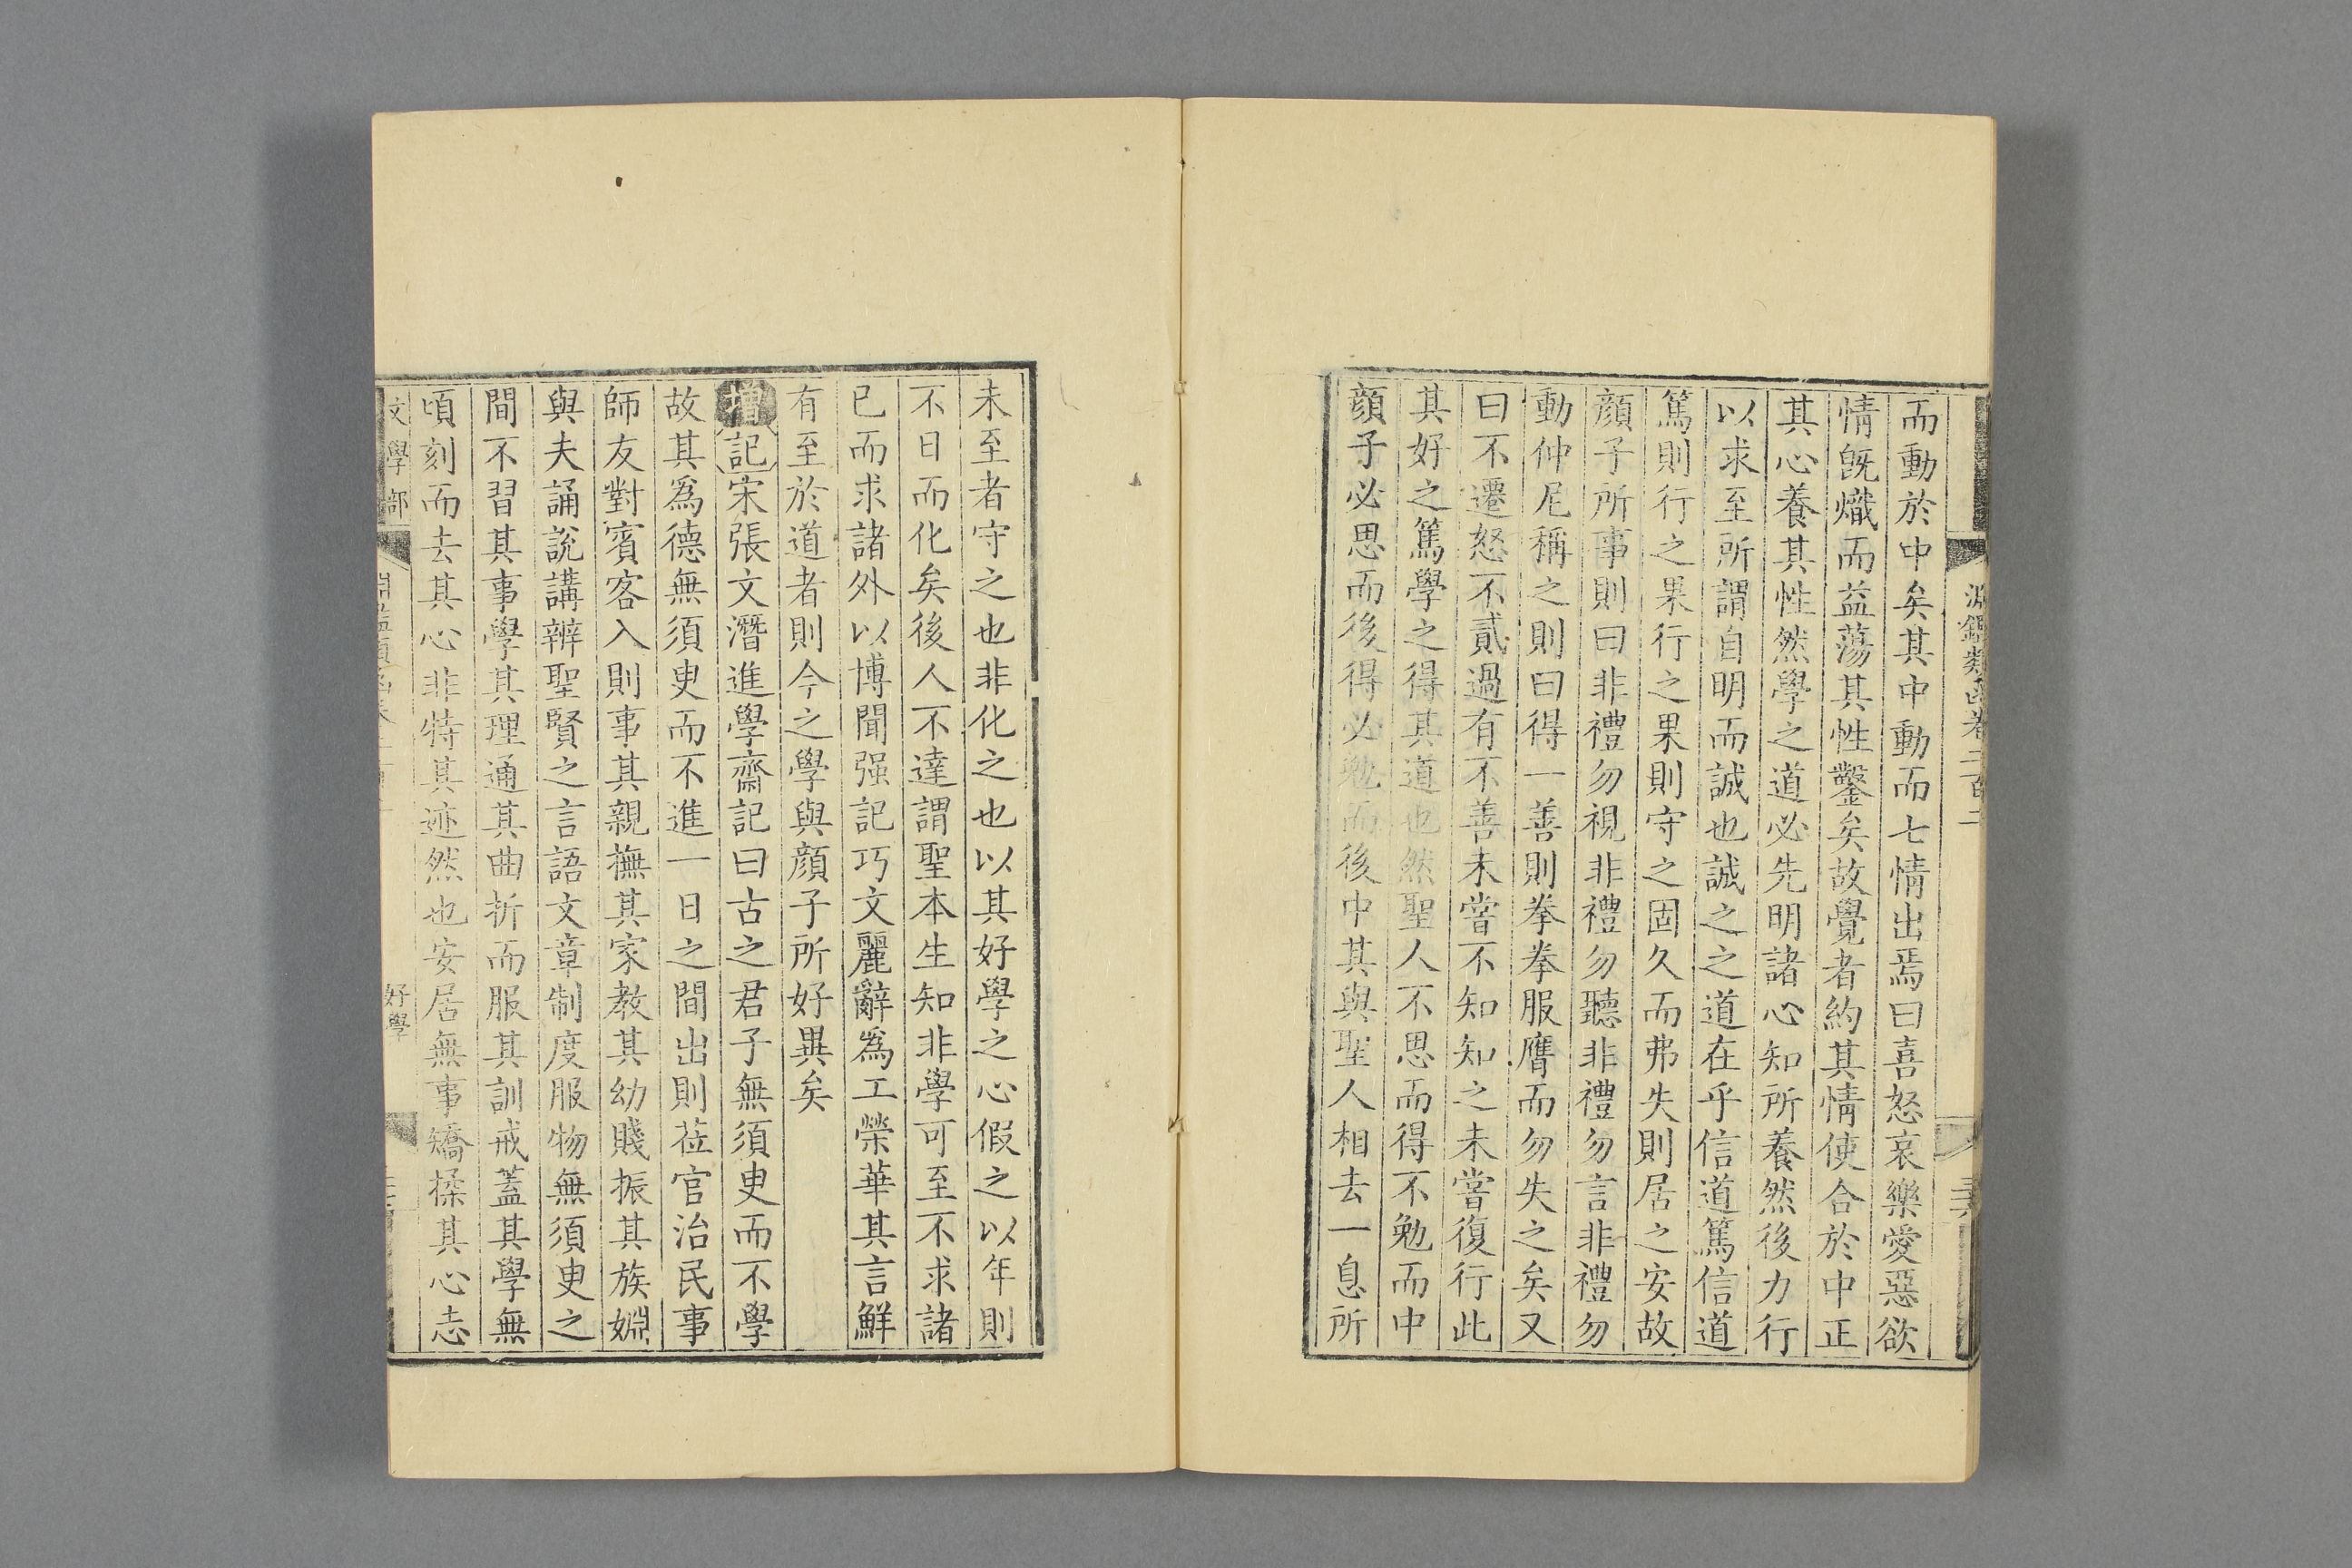 淵鑑類函卷二百二
而動於中矣其中動而七情出焉曰喜怒哀樂愛惡欲
情旣熾而益蕩其性鑿矣故覺者約其情使合於中正
其心養其性然學之道必先明諸心知所養然後力行
以求至所謂自明而誠也誠之之道在乎信道篤信道
篤則行之果行之果則守之固久而弗失則居之安故
顔子所事則曰非禮勿視非禮勿聽非禮勿言非禮勿
動仲尼稱之則曰得一善則拳拳服膺而勿失之矣又
曰不遷怒不貳過有不善未嘗不知知之未嘗復行此
其好之篤學之得其道也然聖人不思而得不勉而中
顔子必思而後得必勉而後中其與聖人相去一息所
未至者守之也非化之也以其好學之心假之以年則
不日而化矣後人不達謂聖本生知非學可至不求諸
已而求諸外以博聞强記巧文麗辭爲工榮華其言鮮
有至於道者則今之學與顔子所好異矣
增記宋張文潛進學齋記曰古之君子無須臾而不學
故其爲德無須臾而不進一日之間出則莅官治民事
師友對賓客入則事其親撫其家教其幼賤振其族婣
與夫誦說講辨聖賢之言語文章制度服物無須臾之
間不習其事學其理通其曲折而服其訓戒蓋其學無
頃刻而去其心非特其迹然也安居無事矯揉其心志
文學部 好學